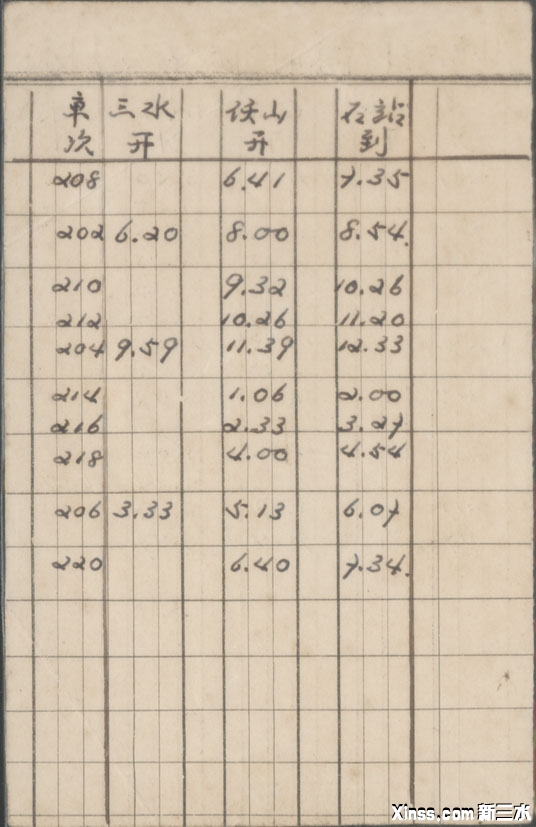 車次 三水开 佛山开 石站到
208 6.41 7.35
202 6.20 8.00 8.54.
210 9.32 10.26
212 10.26 11.20
204 9.59 11.39 12.33
214 1.06 2.00
216 2.33 3.27
218 4.00 4.54
206 3.33 5.13 6.07
220 6.40 7.34.
Xinss.com 新三水